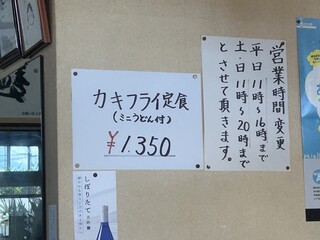 カキフライ定食
(ミニうどん付)
¥1.350
営業時間変更
平日11時〜16時まで
土・日11時〜20時まで
とさせて頂きます。
しぼりたて